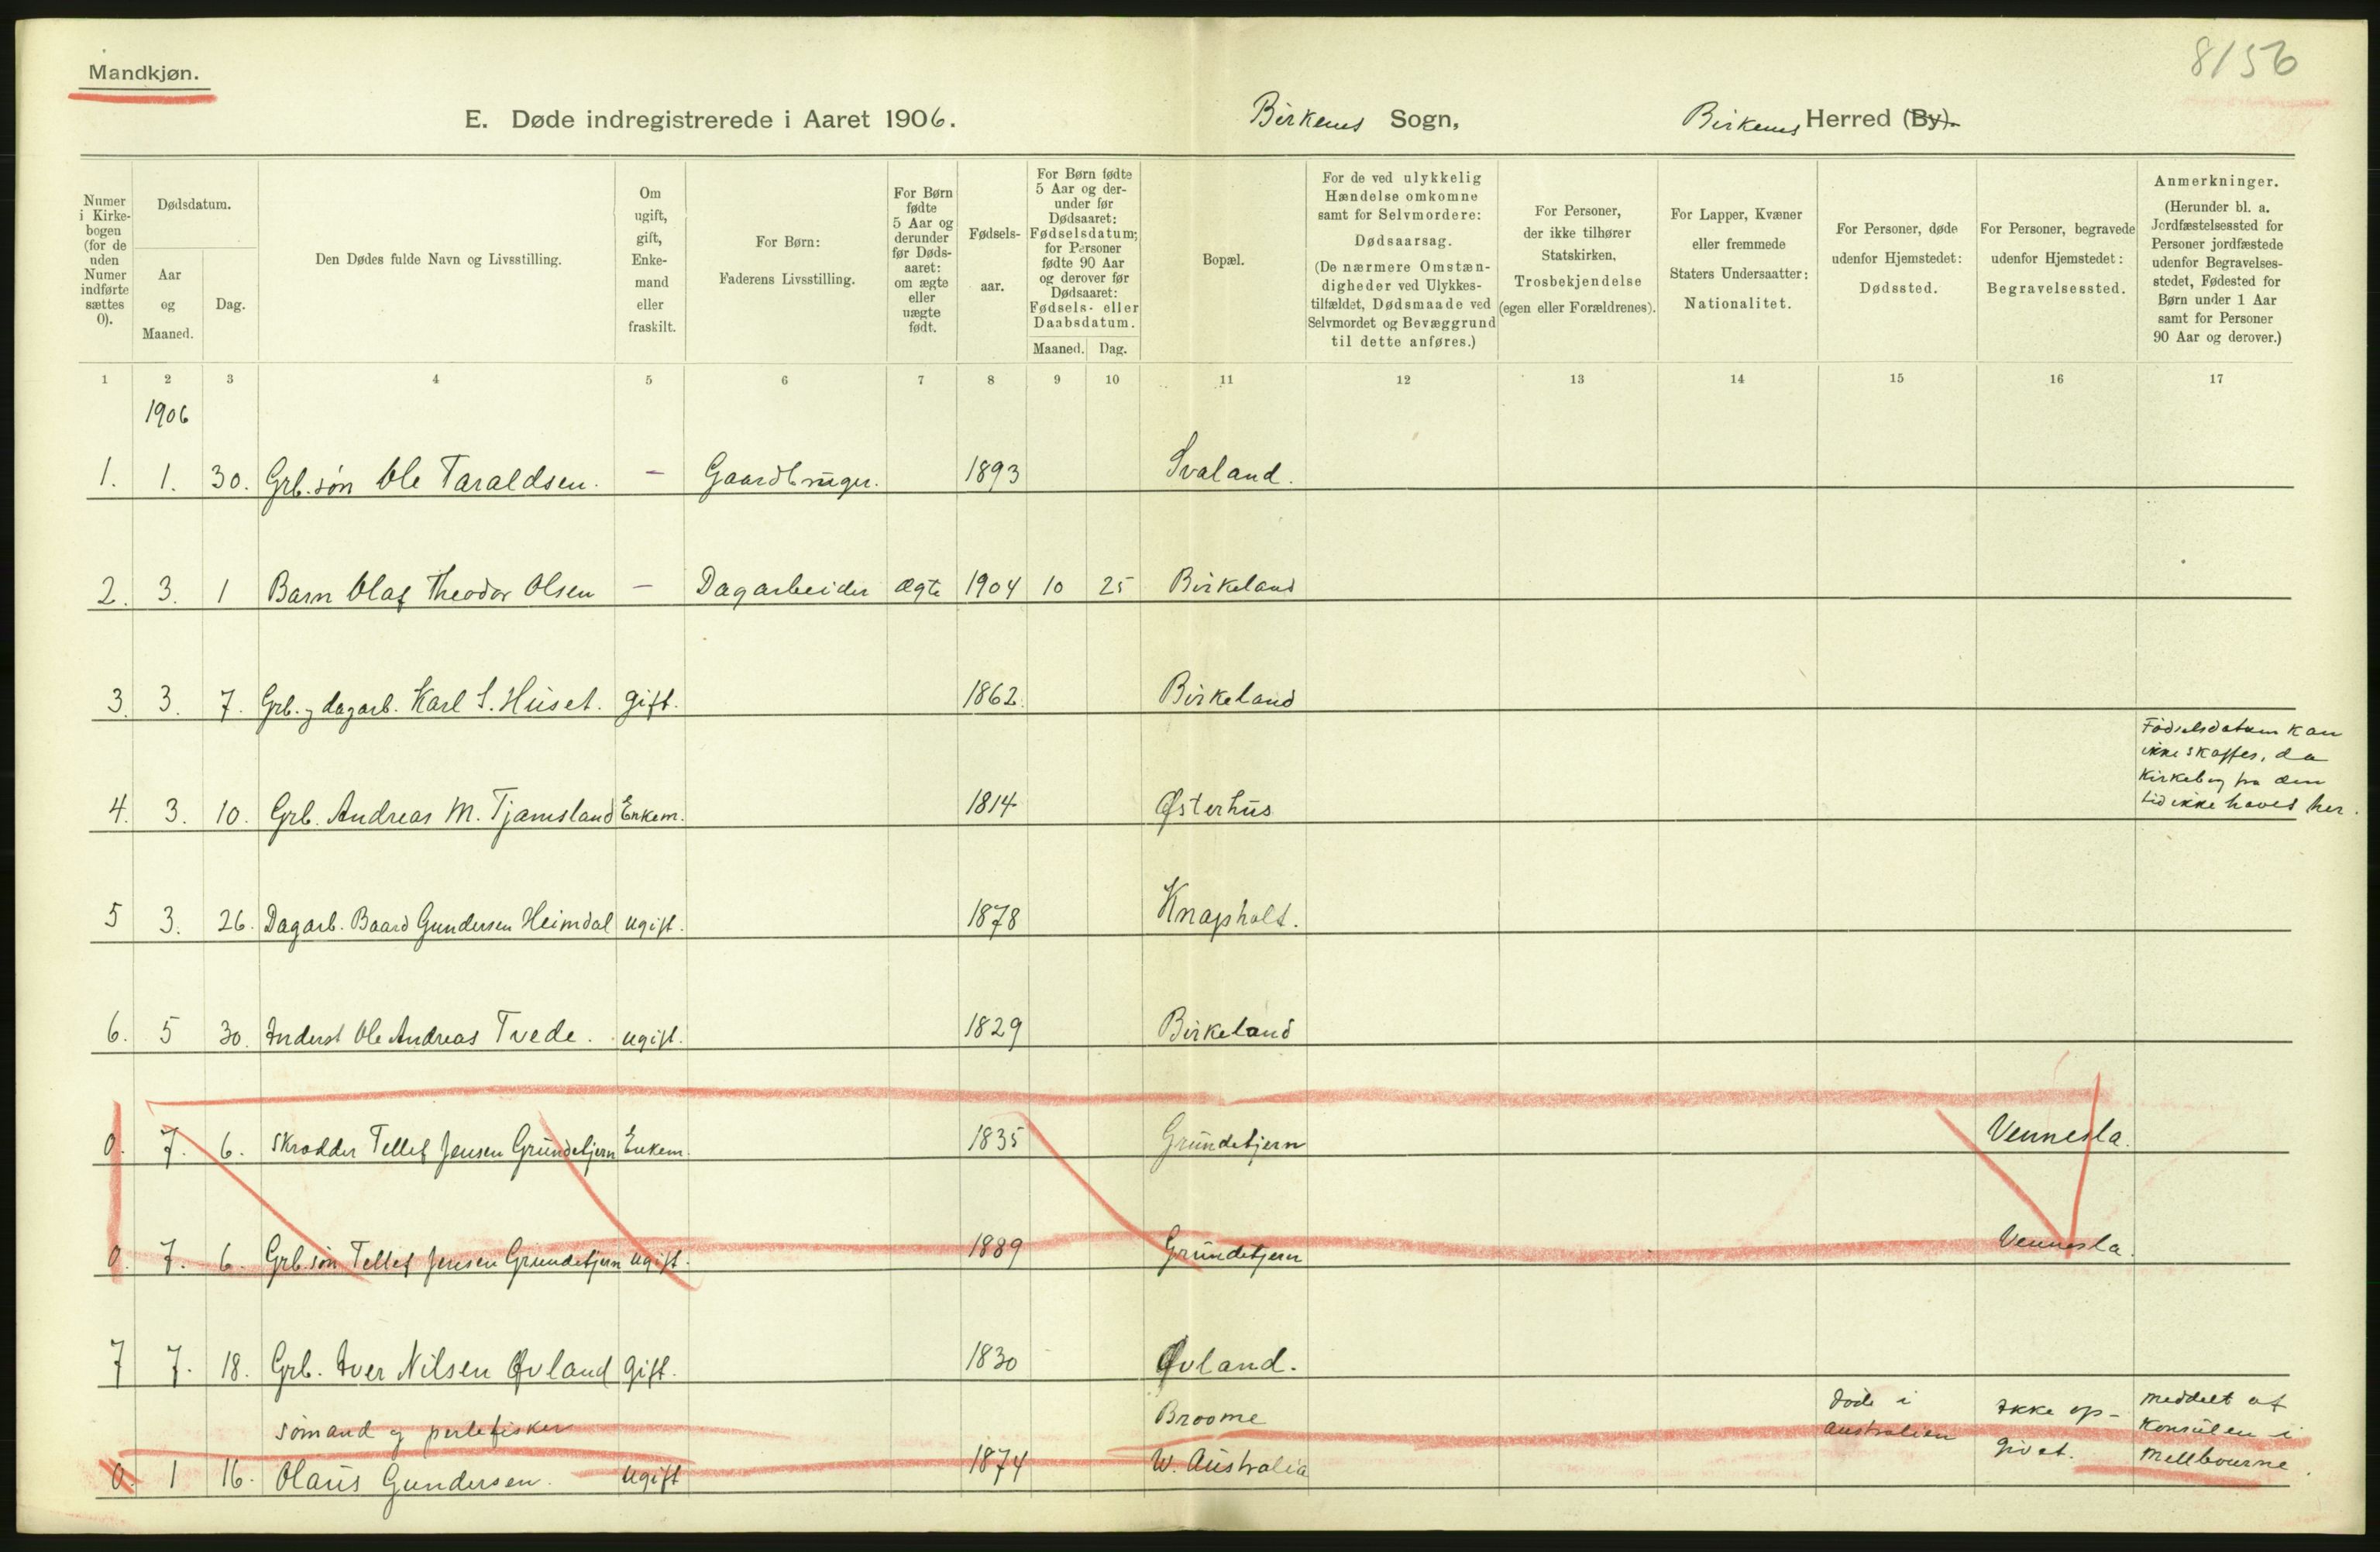 8/56
Mandkjøn.
E. Døde indregistrerede i Aaret 1906. Birkenes Sogn, Birkenes Herred (By).
Numer i Kirkebogen (for de uden Numer indførte sættes 0).
Dødsdatum.
Aar og Maaned.
Dag.
Den Dødes fulde Navn og Livsstilling.
Om ugift, gift, Enkemand eller fraskilt.
For Børn: Faderens Livsstilling.
For Børn fødte 5 Aar og derunder før Dødsaaret: om ægte eller uægte født.
Fødselsaar.
For Børn fødte 5 Aar og derunder før Dødsaaret: Fødselsdatum; for Personer fødte 90 Aar og derover før Dødsaaret: Fødsels- eller Daabsdatum.
Maaned. Dag.
Bopæl.
For de ved ulykkelig Hændelse omkomne samt for Selvmordere: Dødsaarsag. (De nærmere Omstændigheder ved Ulykkestilfældet, Dødsmaade ved Selvmordet og Bevæggrund til dette anføres.)
For Personer, der ikke tilhører Statskirken, Trosbekjendelse (egen eller Forældrenes).
For Lapper, Kvæner eller fremmede Staters Undersaatter: Nationalitet.
For Personer, døde udenfor Hjemstedet: Dødssted.
For Personer, begravede udenfor Hjemstedet: Begravelsessted.
Anmerkninger. (Herunder bl. a. Jordfæstelsessted for Personer jordfæstede udenfor Begravelsesstedet, Fødested for Børn under 1 Aar samt for Personer 90 Aar og derover.)
1 2 3 4 5 6 7 8 9 10 11 12 13 14 15 16 17
1906
1. 1. 30. Grb. søn Ole Taraldsen. - Gaardbruger. 1893 Svaland.
2. 3. 1 Barn Olaf Theodor Olsen - Dagarbeider ægte 1904 10 25 Birkeland
3. 3. 7. Grb. og dagarb. Karl S. Huset. gift. 1862. Birkeland
Fødselsdatum kan
ikke skaffes, da
Kirkebog fra den
tid ikke haves her.
4. 3. 10. Grb. Andreas M. Tjamsland Enkem. 1814 Østerhus
5 3. 26. Dagarb. Baard Gundersen Heimdal ugift. 1878 Knapholt.
6. 5 30. Inderst Ole Andreas Tvede. ugift. 1829 Birkeland
0. 7. 6. Skrædder Tellef Jensen Grundetjern Enkem. 1835 Grundetjern Vennesla.
0. 7. 6. Grb. søn Tellef Jensen Grundetjern ugift. 1889 Grundetjern Vennesla.
7 7. 18. Grb. Iver Nilsen Øvland gift. 1830 Øvland.
sømand og perlefisker Broome døde i Ikke op- meddelt af
Australien givet. Konsulen i
0. 1 16. Olaus Gundersen. ugift 1874 W. Australia Mellbourne.